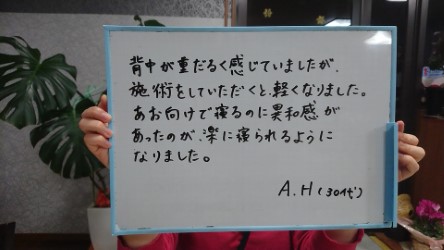 背中が重だるく感じていましたが、
施術をしていただくと、軽くなりました。
あお向けで寝るのに異和感が
あったのが、楽に寝られるように
なりました。
A.H(30代)